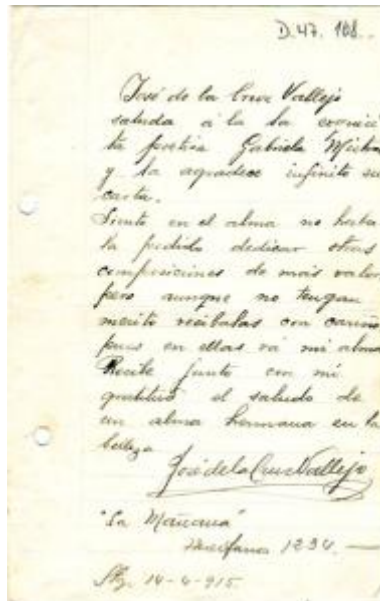 D.47. 108.
José de la Cruz Vallejo
saluda á la la eximi
ta poetisa Gabriela Mistra
y la agradece infinito su
carta.
Siento en el alma no haber
la podido dedicar otras
composiciones de más valor
pero aunque no tengan
merito recibalas con cariño
pues en ellas vá mi alma
Recibe junto con mi
gratitud el saludo de
un alma hermana en la
belleza
José de la Cruz Vallejo
"La Mañana"
Huérfanos 1294.
Stgo 14-4-915